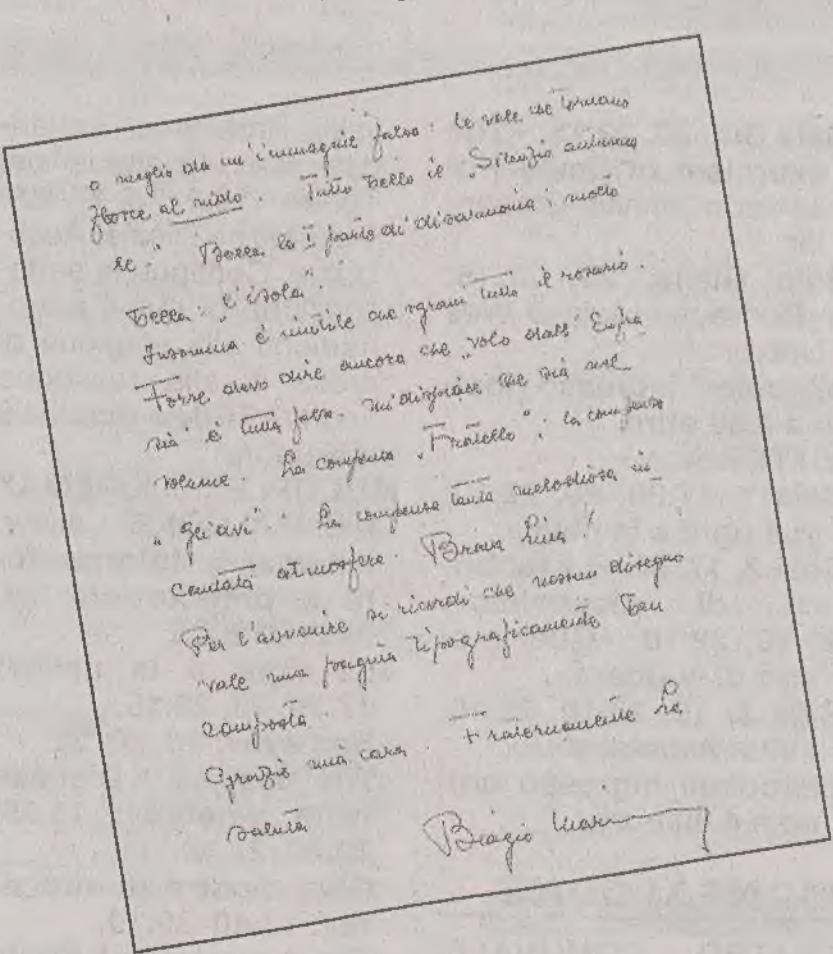 o meglio da un'immagine falsa: le vele che tornano
al nido. Tutto bello il "Silenzio autunna
le". Bella la I parte di "Disarmonia"; molto
bella: "L'isola".
Insomma è inutile che sgrani tutto il rosario.
Forse devo dire ancora che "Volo dall'
è tutta falsa. Mi dispiace che sia nel
volume. La compensa "Fratello"; la compensa
"Gli avi". La compensa tanta melodiosa in
cantata atmosfera. Brava Lina!
Per l'avvenire si ricordi che nessun disegno
vale una pagina tipograficamente ben
composta.
Grazie mia cara. Fraternamente La
saluta Biagio Marin